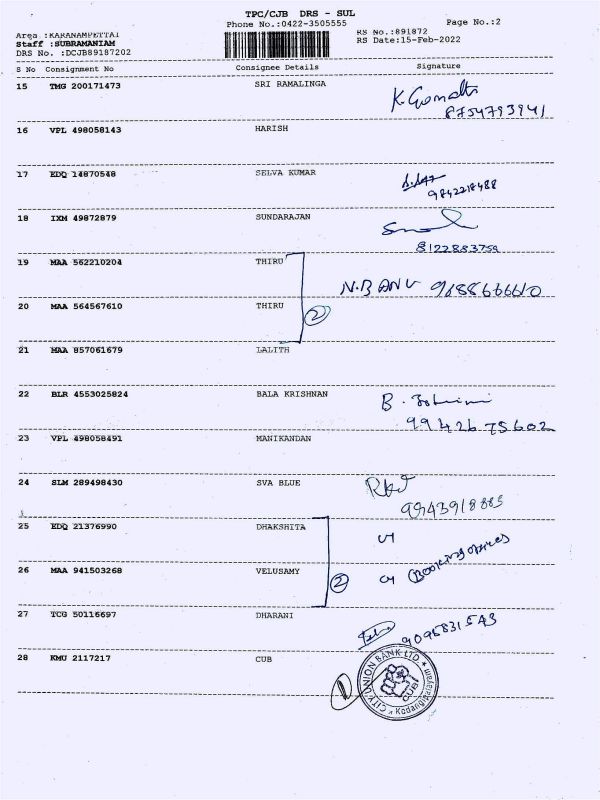 TPC/CJB DRS - SUL
Phone No.:0422-3505555
Page No.:2
Area :KARANAMPETTAI
Staff :SUBRAMANIAM
DRS No. :DCJB89187202
RS No.:891872
RS Date:15-Feb-2022
S No Consignment No Consignee Details Signature
15 TMG 200171473 SRI RAMALINGA K Gomathi
8754793941
16 VPL 498058143 HARISH
17 EDQ 14870548 SELVA KUMAR
9842218488
18 IXM 49872879 SUNDARAJAN
8122883759
19 MAA 562210204 THIRU
N.BANU 9688666610
20 MAA 564567610 THIRU 2
21 MAA 857061679 LALITH
22 BLR 4553025824 BALA KRISHNAN B.
99426 75602
23 VPL 498058491 MANIKANDAN
24 SLM 289498430 SVA BLUE
9943918885
25 EDQ 21376990 DHAKSHITA
26 MAA 941503268 VELUSAMY 2 Booking offices
27 TCG 50116697 DHARANI
9096831543
28 KMU 2117217 CUB
1
CITY UNION BANK LTD
CUB